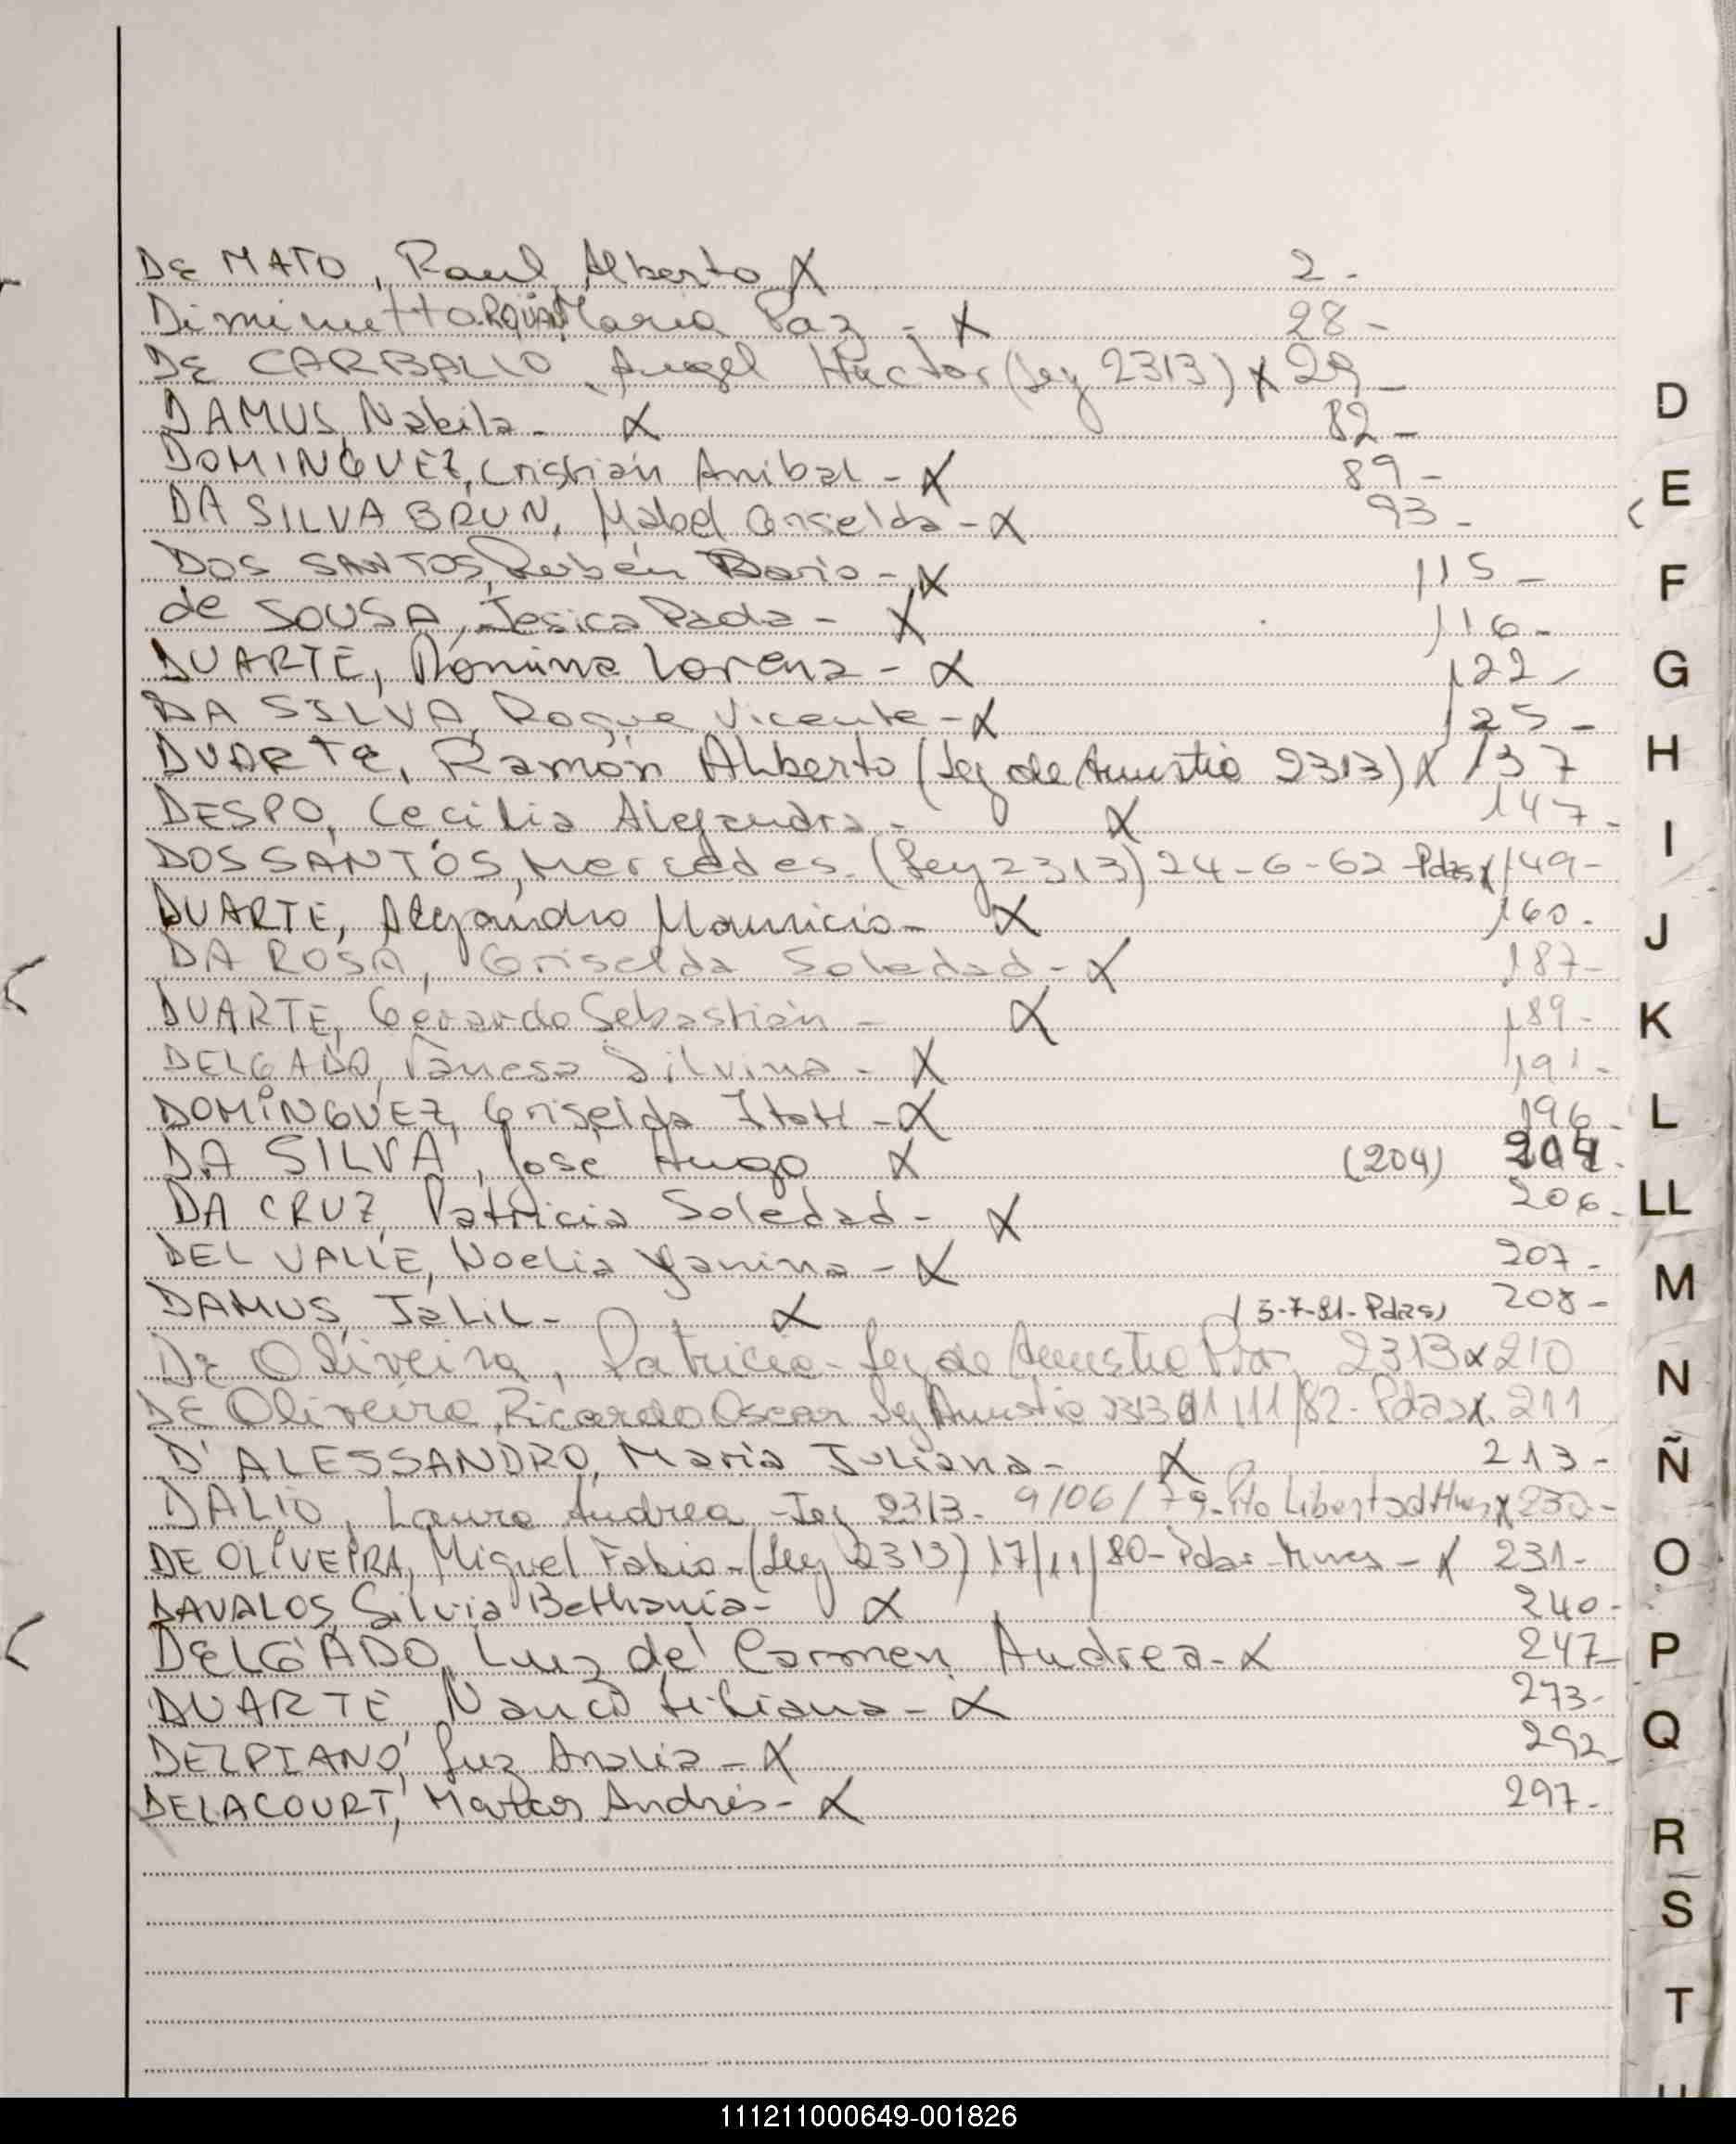 DE MATO, Raul Alberto X 2-
Diminutto Maria Paz - X 28-
DE CARBALLO, Angel Hector (Ley 2313) X 29-
DAMUS, Nabila- X 82-
DOMINGUEZ, Cristian Anibal - X 89-
DA SILVA BRUN, Mabel Griselda - X 93-
DOS SANTOS, Rubén Dario - X 115-
de SOUSA, Jesica Paola - X 116-
DUARTE, Romina Lorena - X 122-
DA SILVA, Roque Vicente - X 125-
DUARTE, Ramón Alberto (Ley de Amnistia 2313) X 137
DESPO, Cecilia Alejandra - X 147-
DOS SANTOS, Mercedes. (Ley 2313) 24-6-62 Pdas X 149-
DUARTE, Alejandro Mauricio - X 160-
DA ROSA, Griselda Soledad - X 187-
DUARTE, Gerardo Sebastián - X 189-
DELGADO, Vanesa Silvina - X 191-
DOMINGUEZ, Griselda Itati - X 196-
DA SILVA, José Hugo X (204) 204-
DA CRUZ, Patricia Soledad - X 206-
DEL VALLE, Noelia Yanina - X 207-
DAMUS, Jalil - X (3-7-81-Pdas) 208-
De Oliveira, Patricia - Ley de Amnistia 2313 x 210
DE Oliveira, Ricardo Oscar Ley Amnistia 2313 11/82- Pdas X. 211
D'ALESSANDRO, Maria Juliana - X 213-
DALIO, Laura Andrea - Ley 2313- 9/06/79- Pto Libertad Mnes X 230-
DE OLIVEIRA, Miguel Fabio - (Ley 2313) 17/11/80- Pdas - Mnes - X 231-
DAVALOS, Silvia Bethania - X 240-
DELGADO, Luz del Carmen Andrea - X 247-
DUARTE, Nanci Liliana - X 273-
DELPIANO, Luz Analia - X 292-
DELACOURT, Marcos Andrés - X 297-
D
E
F
G
H
I
J
K
L
LL
M
N
Ñ
O
P
Q
R
S
T
111211000649-001826